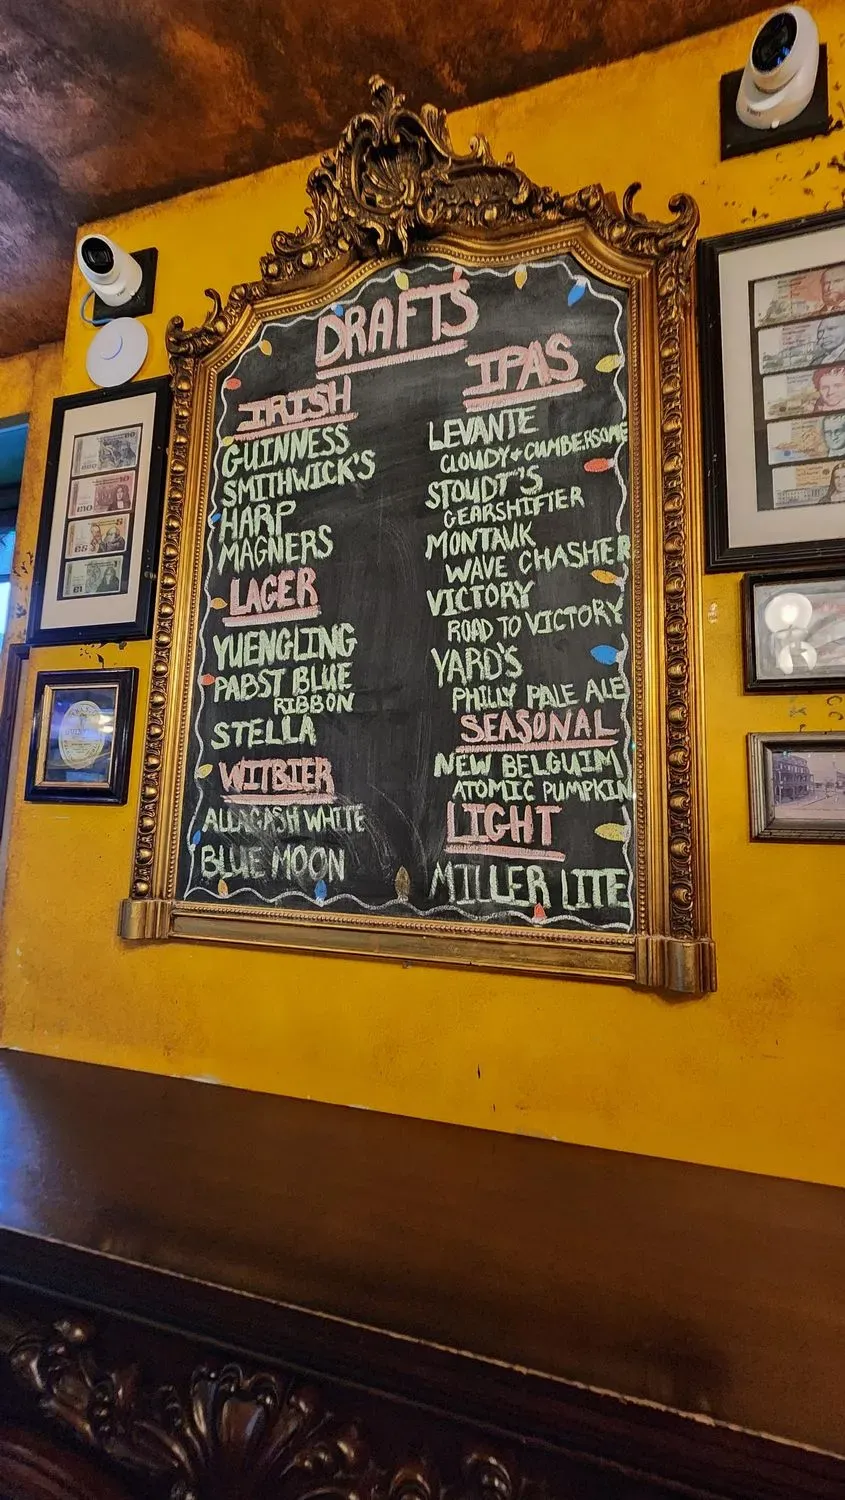 DRAFTS
IRISH
GUINNESS
SMITHWICK'S
HARP
MAGNERS
LAGER
YUENGLING
PABST BLUE
RIBBON
STELLA
WITBIER
ALLAGASH WHITE
BLUE MOON
IPAS
LEVANTE
CLOUDY + CUMBERSOME
STOUDT'S
GEARSHIFTER
MONTAUK
WAVE CHASHER
VICTORY
ROAD TO VICTORY
YARD'S
PHILLY PALE ALE
SEASONAL
NEW BELGUIM
ATOMIC PUMPKIN
LIGHT
MILLER LITE